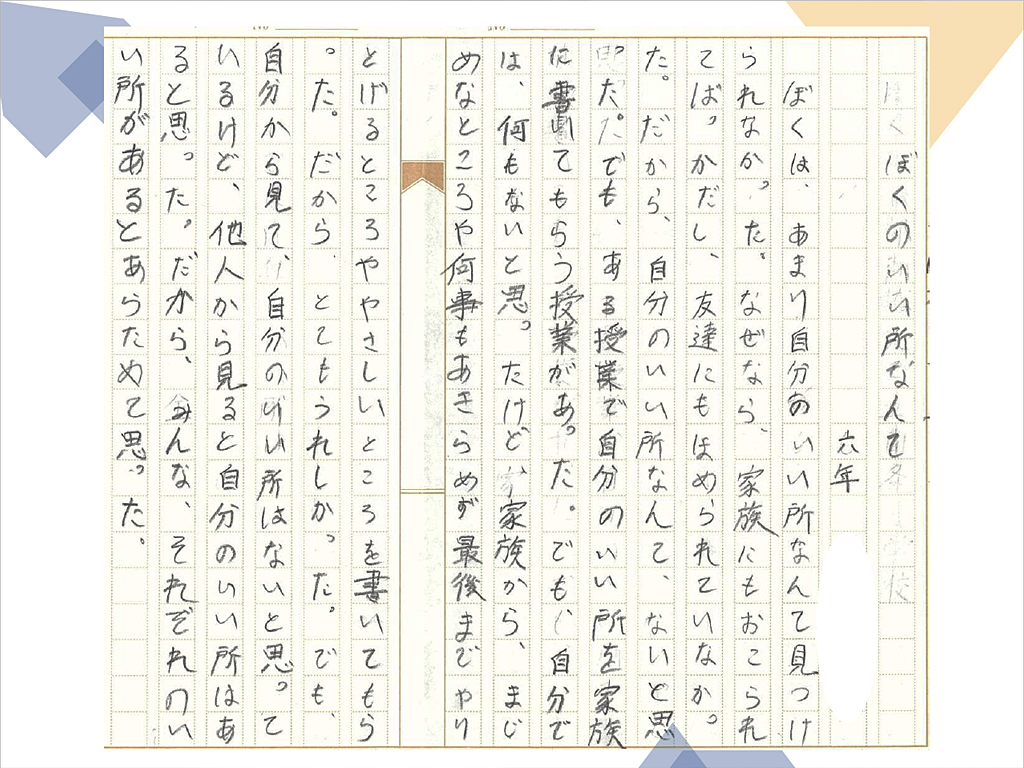 ぼくのいい所なんて
六年
ぼくは、あまり自分のいい所なんて見つけ
られなかった。なぜなら、家族にもおこられ
てばっかだし、友達にもほめられていなかっ
た。だから、自分のいい所なんて、ないと思
った。でも、ある授業で自分のいい所を家族
に書いてもらう授業があった。でも、自分で
は、何もないと思ったけど、家族から、まじ
めなところや何事もあきらめず最後までやり
とげるところややさしいところを書いてもら
った。だから、とてもうれしかった。でも、
自分から見て、自分のいい所はないと思って
いるけど、他人から見ると自分のいい所はあ
ると思った。だから、みんな、それぞれのい
い所があるとあらためて思った。